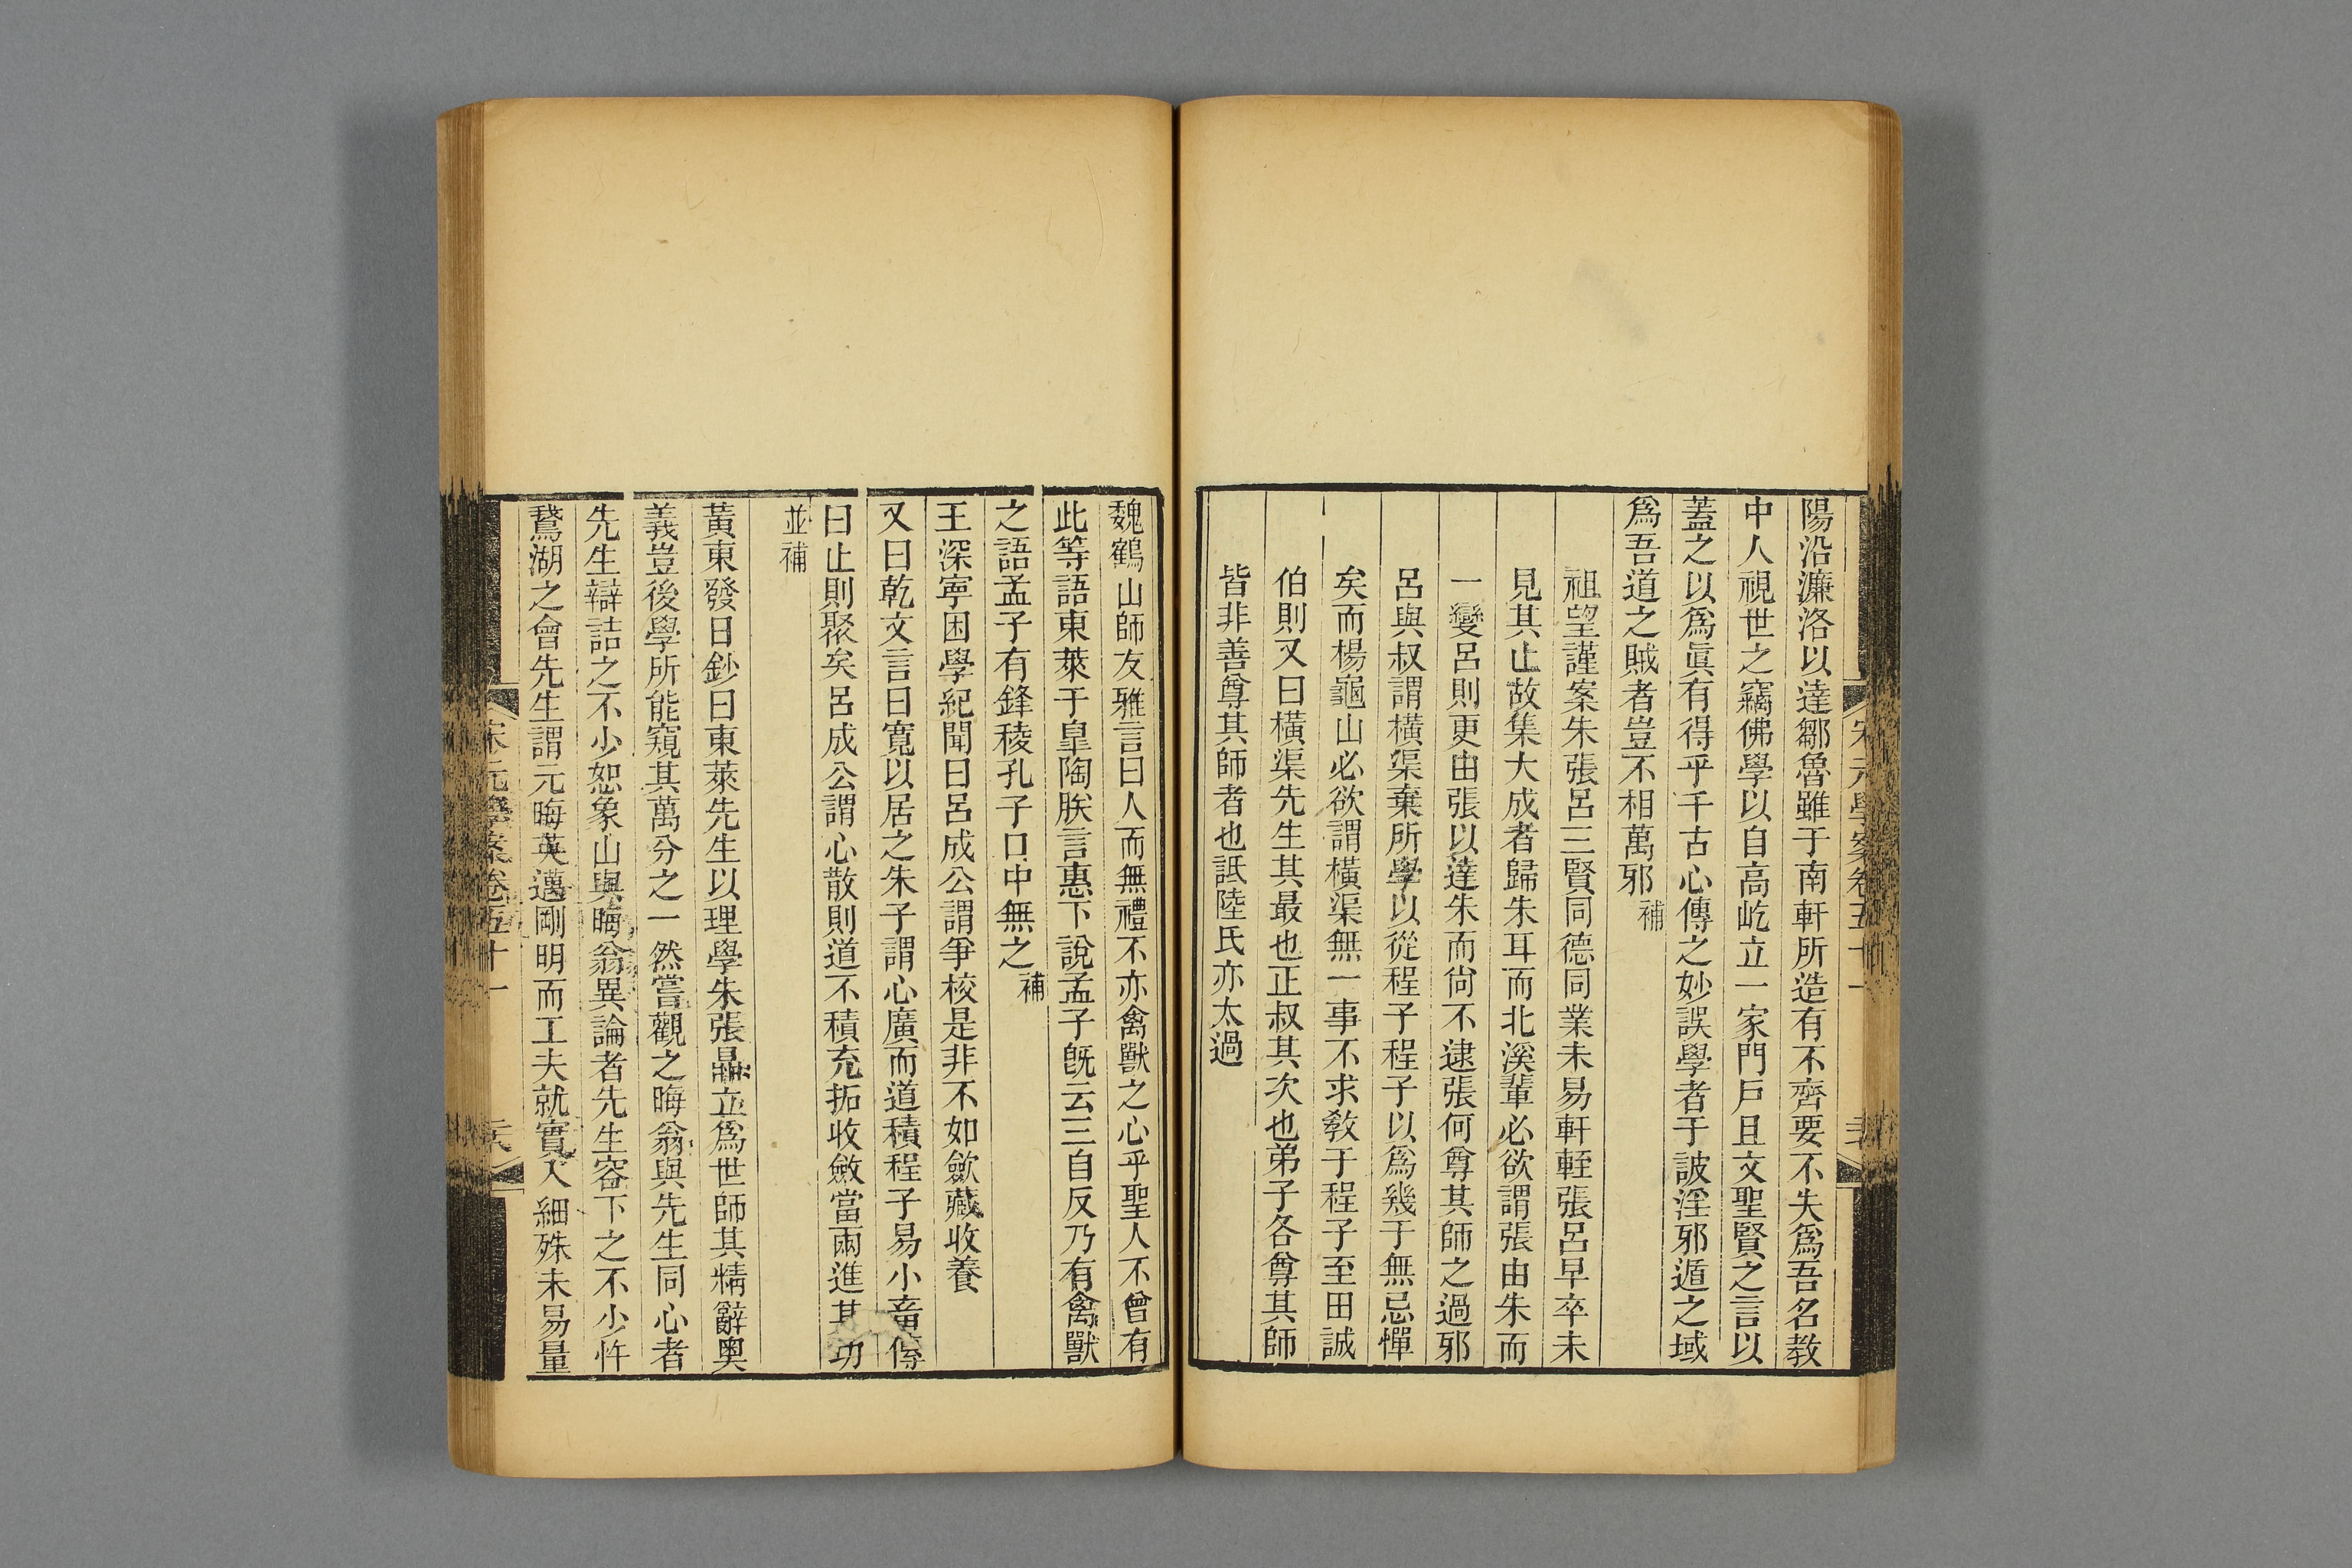 陽沿濂洛以達鄒魯雖于南軒所造有不齊要不失爲吾名教
中人視世之竊佛學以自高屹立一家門戶且文聖賢之言以
蓋之以爲眞有得乎千古心傳之妙誤學者于詖淫邪遁之域
爲吾道之賊者豈不相萬邪補
祖望謹案朱張呂三賢同德同業未易軒輊張呂早卒未
見其止故集大成者歸朱耳而北溪輩必欲謂張由朱而
一變呂則更由張以達朱而尙不逮張何尊其師之過邪
呂與叔謂橫渠棄所學以從程子程子以爲幾于無忌憚
矣而楊龜山必欲謂橫渠無一事不求敎于程子至田誠
伯則又曰橫渠先生其最也正叔其次也弟子各尊其師
皆非善尊其師者也詆陸氏亦太過
魏鶴山師友雅言曰人而無禮不亦禽獸之心乎聖人不曾有
此等語東萊于皐陶朕言惠下說孟子旣云三自反乃有禽獸
之語孟子有鋒稜孔子口中無之補
王深寧困學紀聞曰呂成公謂爭校是非不如歛藏收養
又曰乾文言曰寬以居之朱子謂心廣而道積程子易小畜傳
曰止則聚矣呂成公謂心散則道不積充拓收斂當兩進其功
並補
黃東發日鈔曰東萊先生以理學朱張鼎立爲世師其精辭奧
義豈後學所能窺其萬分之一然嘗觀之晦翁與先生同心者
先生辯詰之不少恕象山與晦翁異論者先生容下之不少忤
鵞湖之會先生謂元晦英邁剛明而工夫就實入細殊未易量
宋元學案卷五十一